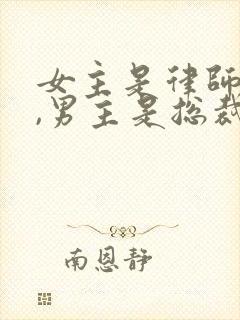 女主是律师
,男主是总裁
南恩静